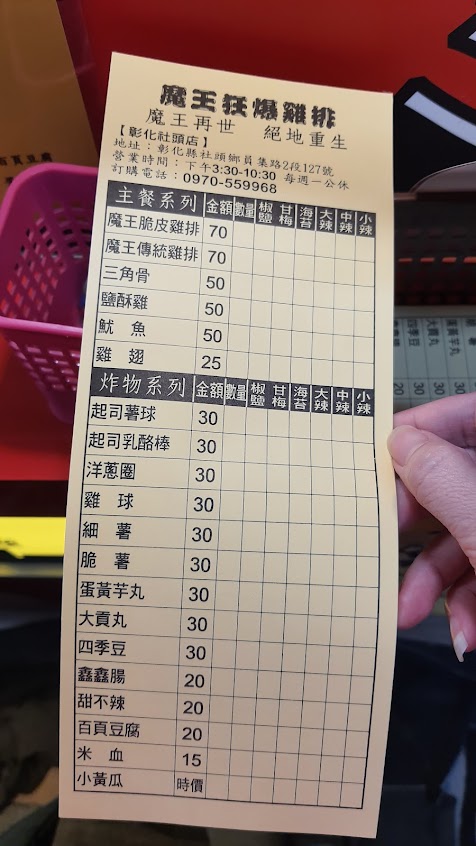 魔王狂爆雞排
魔王再世 絕地重生
【彰化社頭店】
地址：彰化縣社頭鄉員集路2段127號
營業時間：下午3:30-10:30 每週一公休
訂購電話：0970-559968
主餐系列 金額 數量 椒鹽 甘梅 海苔 大辣 中辣 小辣
魔王脆皮雞排 70
魔王傳統雞排 70
三角骨 50
鹽酥雞 50
魷魚 50
雞翅 25
炸物系列 金額 數量 椒鹽 甘梅 海苔 大辣 中辣 小辣
起司薯球 30
起司乳酪棒 30
洋蔥圈 30
雞球 30
細薯 30
脆薯 30
蛋黃芋丸 30
大貢丸 30
四季豆 30
鑫鑫腸 20
甜不辣 20
百頁豆腐 20
米血 15
小黃瓜 時價
百頁豆腐
蛋黃芋丸 30
大貢丸 30
四季豆 30
20